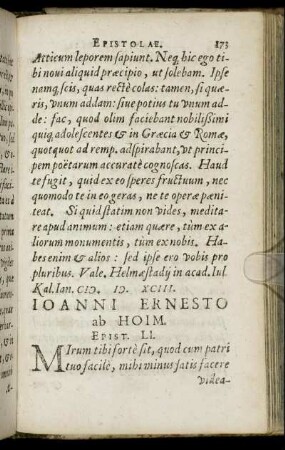 EPISTOLAE. 173
Atticum leporem sapiunt. Neq́, hic ego ti-
bi novi aliquid præcipio, ut solebam. Ipse
namq́, scis, quas rectè colas: tamen, si quæ-
ris, vnum addam: sive potius tu vnum ad-
de: fac, quod olim faciebant nobilißimi
quiq́, adolescentes & in Græcia & Romæ,
quotquot ad remp. adspirabant, vt princi-
pem poëtarum accuratè cognoscas. Haud
te fugit, quid ex eo speres fructuum, nec
quomodo te in eo geras, ne te operæ pœni-
teat. Si quid statim non vides, medita-
re apud animum: etiam quære, tùm ex a-
liorum monumentis, tùm ex nobis. Ha-
bes enim & alios: sed ipse ero vobis pro
pluribus. Vale. Helmæstadij in acad. Iul.
Kal. Ian. CIↃ. IↃ. XCIII.
IOANNI ERNESTO
ab HOIM.
EPIST. LI.
MIrum tibi fortè sit, quod cum patri
tuo facilè, mihi minus satis facere
videa-